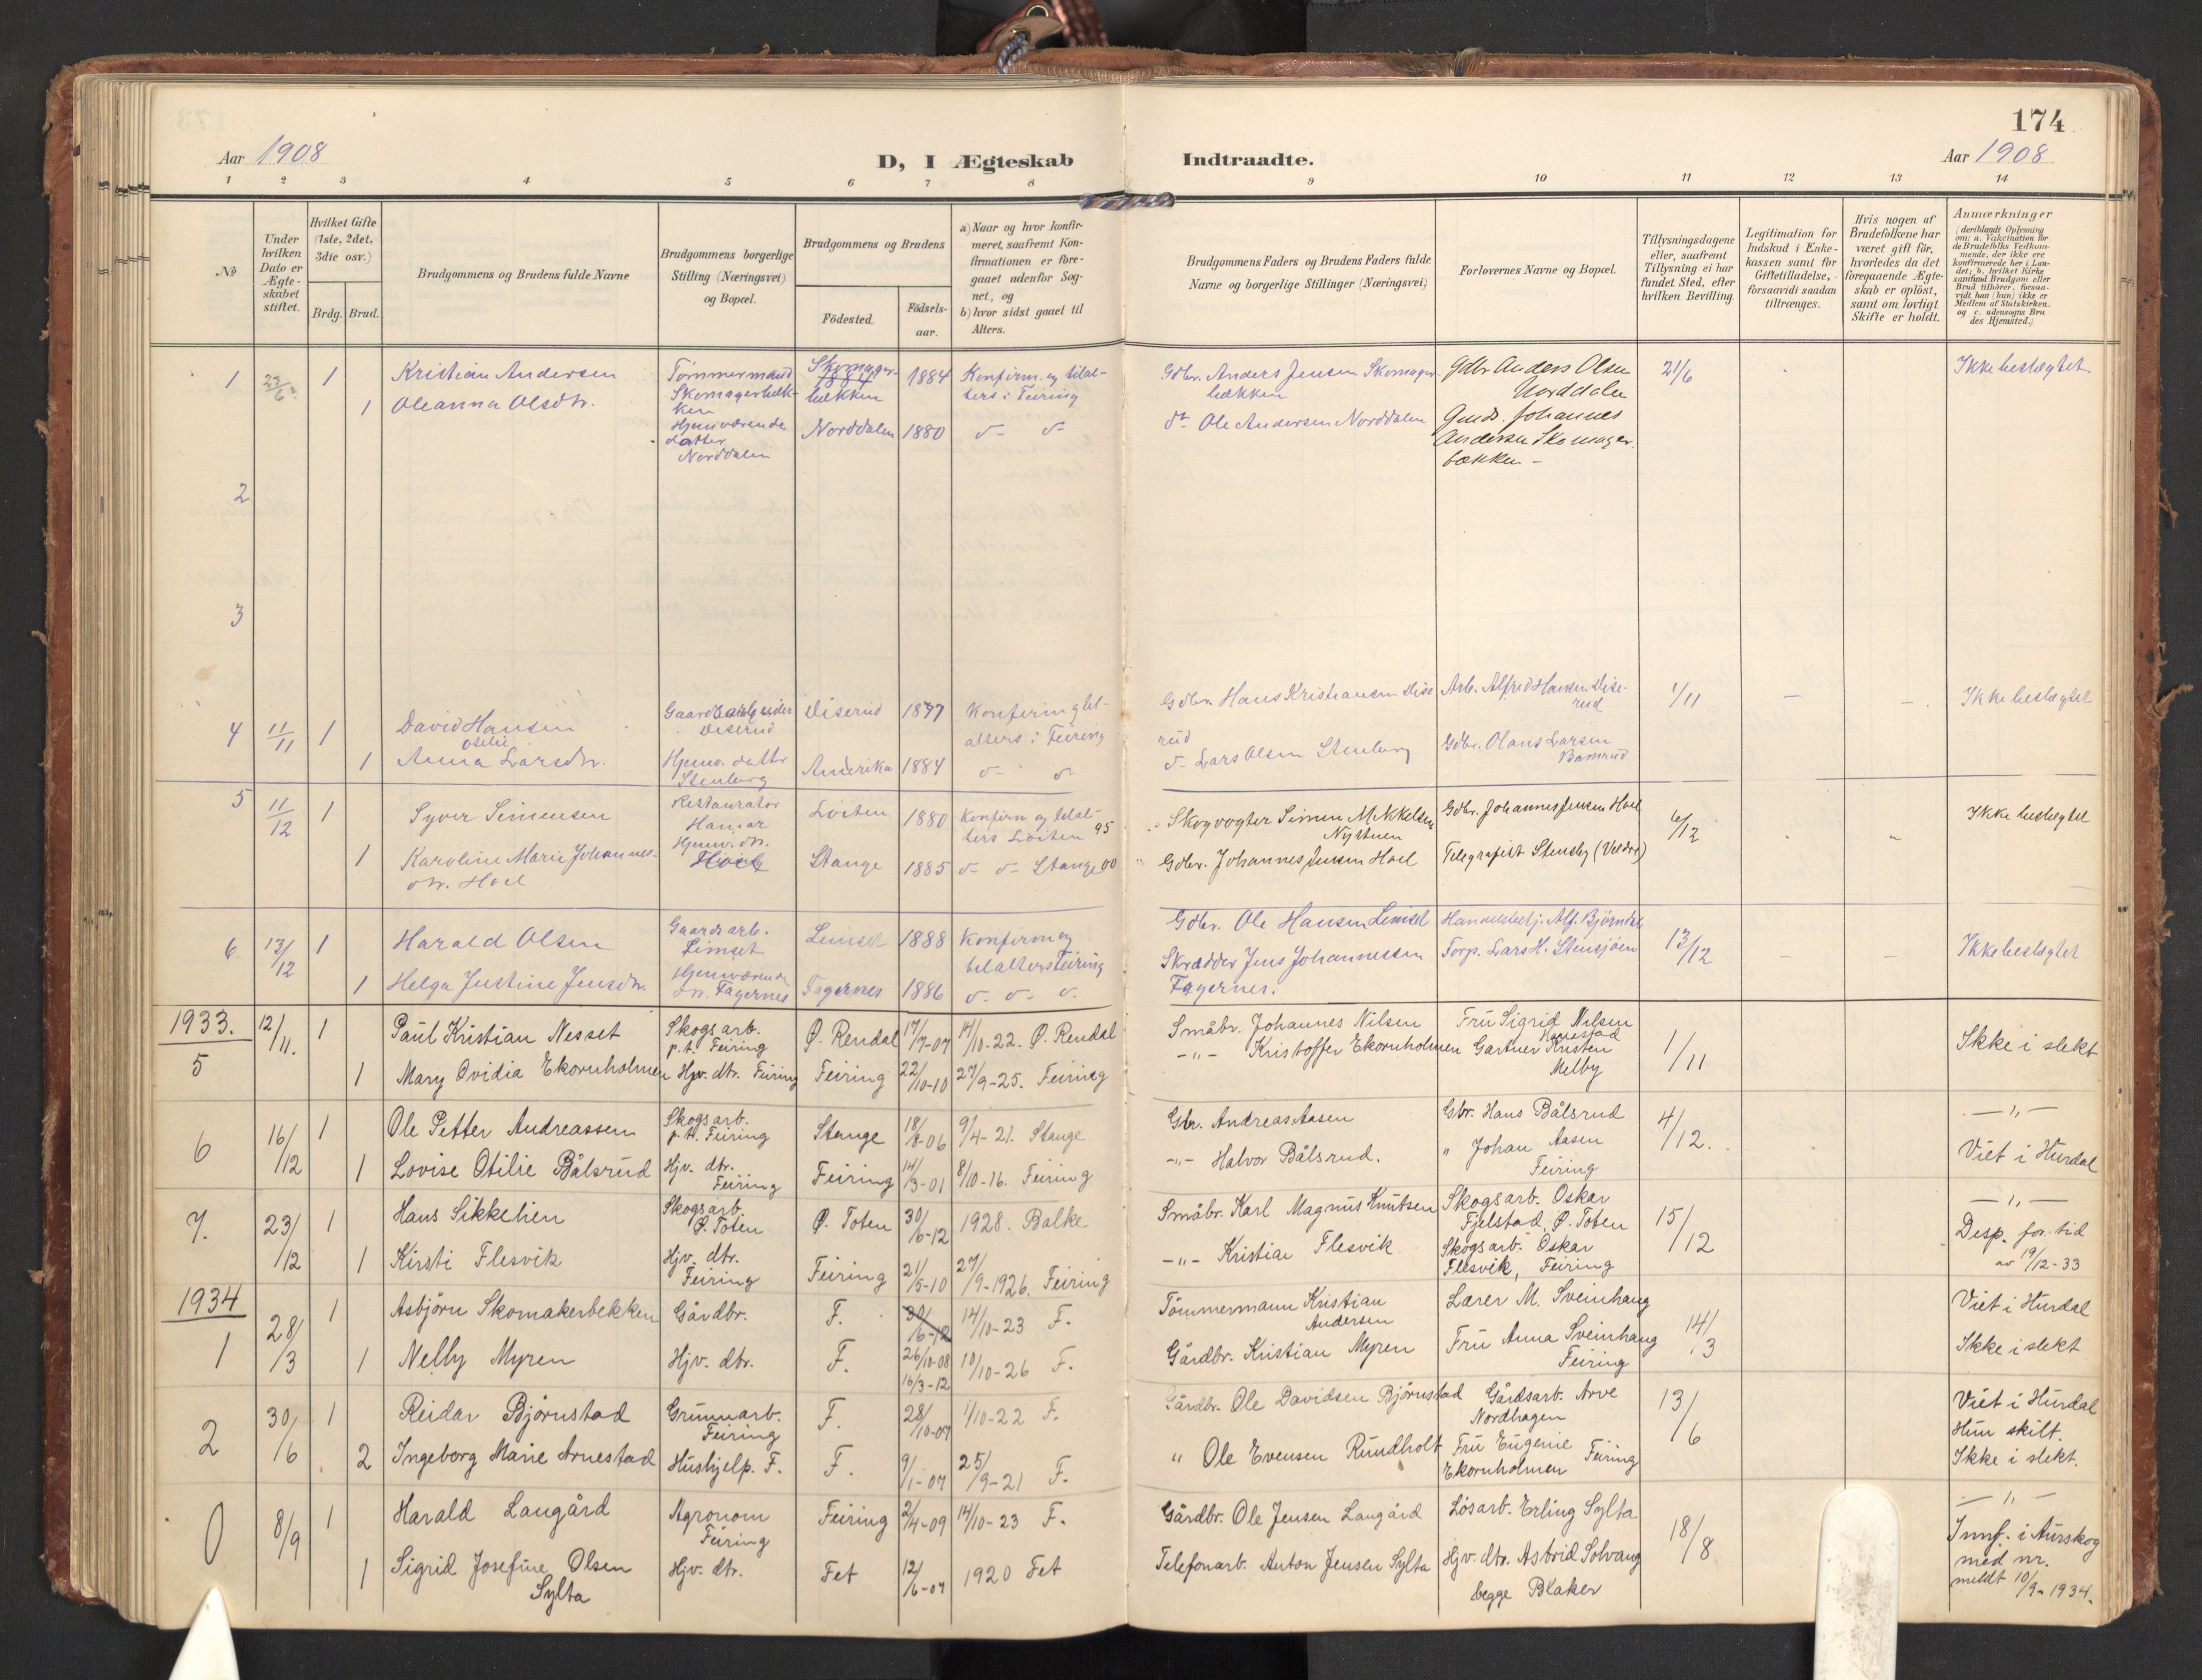 174
Aar 1908
D, I Ægteskab
Indtraadte.
Aar 1908
1 2 3 4 5 6 7 8 9 10 11 12 13 14
No
Under hvilken Dato er Ægteskabet stiftet.
Hvilket Gifte (1ste, 2det, 3die osv.)
Brdg. Brud.
Brudgommens og Brudens fulde Navne
Brudgommens borgerlige Stilling (Næringsvei) og Bopæl.
Brudgommens og Brudens
Fødested.
Fødsels-aar.
a) Naar og hvor konfirmeret, saafremt Konfirmationen er foregaaet udenfor Sognet, og
b) hvor sidst gaaet til Alters.
Brudgommens Faders og Brudens Faders fulde Navne og borgerlige Stillinger (Næringsvei)
Forlovernes Navne og Bopæl.
Tillysningsdagene eller, saafremt Tillysning ei har fundet Sted, efter hvilken Bevilling.
Legitimation for Indskud i Enkekassen samt for Giftetilladelse, forsaavidt saadan tiltrænges.
Hvis nogen af Brudefolkene har været gift før, hvorledes da det foregaaende Ægteskab er opløst, samt om lovligt Skifte er holdt.
Anmærkninger
(deriblandt Oplysning om: a. Vakcination for de Brudefolks Vedkommende, der ikke ere konfirmerede her i Landet; b. hvilket Kirkesamfund Brudgom eller Brud tilhører, forsaavidt han (hun) ikke er Medlem af Statskirken, og c. udensogns Brudes Hjemsted.)
1 22/6 1 Kristian Andersen Tømmermand Skomagerbækken Skomagerbækken 1884 1884 Konfirm. og tilalters i Feiring Gdbr. Anders Jensen Skomagerbækken Gdbr Anders Olsen Norddalen 21/6 Ikke beslægtet
1 Oleanna Olsdtr. Hjemværende datter Norddalen Norddalen 1880 d- d- do Ole Andersen Norddalen Gmds. Johannes Andersen Skomagerbækken -
2
3
4 11/11 1 David Hansen Gaardbarbeider Diserud Diserud 1877 Konfirm og tilalters i Feiring Gdbr. Hans Kristiansen Diserud Arb. Alfred Hansen Diserud 1/11 - - Ikke beslægtet
1 Anna Otelie Larsdtr. Hjemv. datter Stenberg Amerika 1884 d- d- d- Lars Olsen Stenberg Gdbr. Olaus Larsen Bamrud
5 11/12 1 Syver Simensen Restauratør Hamar Löiten 1880 Konfirm og tilalters Löiten 95 Skogvogter Simen Mikkelsen Nystuen Gdbr. Johannes Jensen Hoel 6/12 Ikke beslægtet
1 Karoline Marie Johannesdtr. Hoel Hjemv. dtr. Hoel Stange 1885 d- d- Stange 00 Gdbr. Johannes Jensen Hoel Telegrafist Stensby (Veldre)
6 13/12 1 Harald Olsen Gaardsarb. Limset Limset 1888 Konfirm og tilalters Feiring Gdbr. Ole Hansen Limset Handelsbetj. Alf. Björndal 13/12 - - Ikke beslægtet
1 Helga Justine Jensdtr. Hjemværende dtr. Fagernes Fagernes 1886 d- d- d- Skrædder Jens Johannessen Fagernes. Torp. Lars H. Stensjøen
1933.
5 12/11. 1 Paul Kristian Nesset Skogsarb. p.t. Feiring Ø. Rendal 17/7-07 14/10-22. Ø. Rendal Småbr. Johannes Nilsen Fru Sigrid Nilsen 1/11 Ikke i slekt
1 Mary Ovidia Ekornholmen Hjv. dtr. Feiring Feiring 22/10-10 27/9-25. Feiring -"- Kristoffer Ekornholmen Gartner Kristen Melby
6 16/12 1 Ole Petter Andreassen Skogsarb. p.t. Feiring Stange 18/8-06 9/4-21. Stange Gbr. Andreas Aasen Gbr. Hans Bålsrud 4/12. -"-
1 Lovise Otilie Bålsrud Hjv. dtr. Feiring Feiring 14/3-01 8/10-16. Feiring -"- Halvor Bålsrud. " Johan Aasen Feiring Viet i Hurdal
7. 23/12 1 Hans Sikkelien Skogsarb. Ø. Toten Ø. Toten 30/6-12 1928. Balke Småbr. Karl Magnus Knutsen Skogsarb. Oskar Fjelstad, Ø. Toten 15/12 -"-
1 Kirsti Flesvik Hjv. dtr. Feiring Feiring 21/5-10 27/9-1926. Feiring -"- Kristian Flesvik Skogsarb. Oskar Flesvik, Feiring Desp. for tid av 19/12-33
1934
1 28/3 1 Asbjørn Skomakerbekken Gårdbr. F. 30/6-12 26/10-08 14/10-23 F. Tømmermann Kristian Andersen Lærer M. Sveinhaug 14/3 Viet i Hurdal
1 Nelly Myren Hjv. dtr. F. 16/3-12 10/10-26 F. Gårdbr. Kristian Myren Fru Anna Sveinhaug Feiring Ikke i slekt
2 30/6 1 Reidar Bjørnstad Grunnarb. Feiring F. 28/10-07 1/10-22 F. Gårdbr. Ole Davidsen Bjørnstad Gårdsarb. Arve Nordhagen 13/6 Viet i Hurdal
2 Ingeborg Marie Arnestad Hushjelp. F. F. 9/1-07 25/9-21 F. " Ole Evensen Rundholt Fru Eugenie Ekornholmen Feiring Hun skilt. Ikke i slekt.
0 8/9 1 Harald Laugård Agronom Feiring Feiring 2/4-09 14/10-23 F. Gårdbr. Ole Jensen Laugård Løsarb. Erling Sylta 18/8 -"-
1 Sigrid Josefine Olsen Sylta Hjv. dtr. Fet 12/6-07 1920 Fet Telefonarb. Anton Jensen Sylta Hjv. dtr. Astrid Solvang begge Blaker Innf. i Aurskog med nr. meldt 10/9-1934.